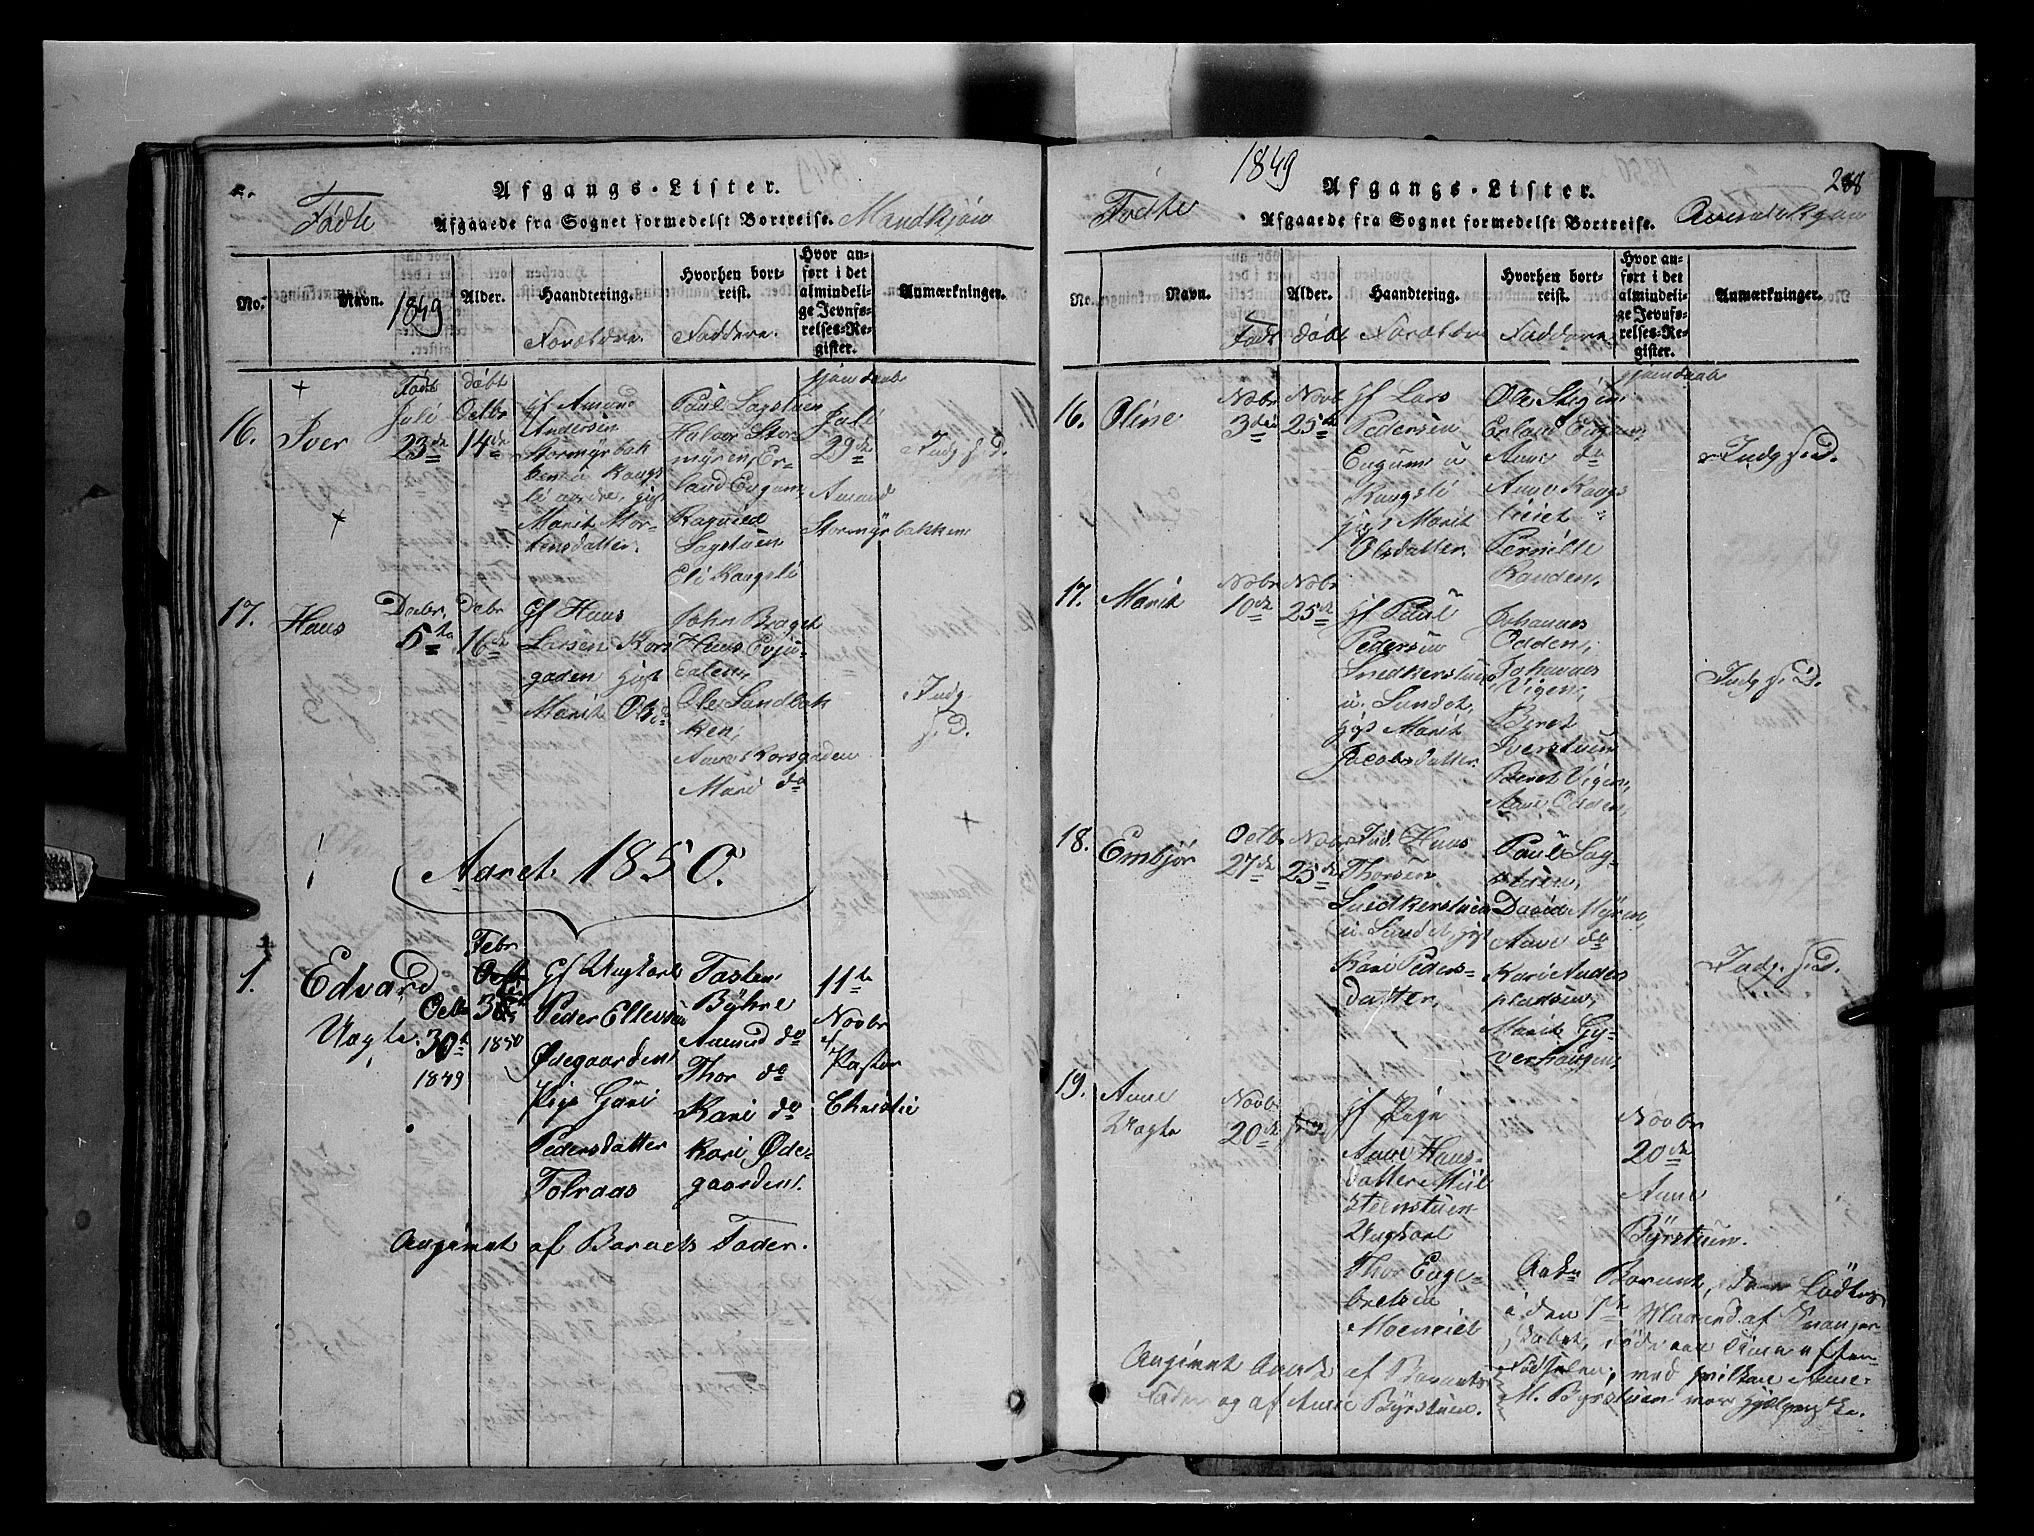 Afgangs-Lister.
Fødte
Afgaaede fra Sognet formedelst Bortreise.
Mandkjøn
No.
Navn.
1849
Alder.
Haandtering.
Forældre.
Hvorhen bort-
reist.
Faddere.
Hvor an-
ført i det
almindeli-
ge Jevnfø-
relses-Re-
gister.
Anmærkninger.
16.
Iver
Født
Juli
23de
døbt
Octbr
14de
Gf Amund
Andersen
Stormyrbak
Marit Mor-
tensdatter.
Paul Sagstuen
Halvor Stor-
myren, Er-
land Engum
Ragnild
Sagstuen
Eli Kongsli
hjemdøbt
Juli
29de
Amund
Stormyrbakken
Indg f. D.
17.
Hans
Decbr.
5te
Debr
16de
Gf Hans
Larsen Kors
gaden
Marit Olsd
John Braget
Hans Evju-
Ole Sandbak
ken,
Anne Korsgaden
Mari do
Indg
f. D.
Aaret 1850.
1.
Edvard
Uægte
Octbr
30te
1849
Febr
3die
1850
Gf Ungkarl
Peder Ellevsen
Ødegaarden
Pige Guri
Pedersdatter
Tolraas
Tosten
Byhre
Amund do
Thor do
Kari do
Kari Øde-
gaarden.
11te
Novbr
af
Pastor
Christie
Angivet af Barnets Fader.
1849
Afgangs-Lister.
288
Fødte
Afgaaede fra Sognet formedelst Bortreise.
Qvindekjøn
No.
Navn.
Født
Alder.
døbt
Haandtering.
Forældre
Hvorhen bort-
reist.
Faddere
Hvor an-
ført i det
almindeli-
ge Jevnfø-
relses-Re-
gister.
Anmærkninger.
16.
Oline
Novbr
3die
Novb
25de
Gf Lars
Pedersen
Engum u
Kongsli
Marit
Olsdatter.
Ole Stigen
Erland Engum,
Anne do
Anne Kongs
lieiet
Pernille
Randen,
hjemdøbt
Indg f. D.
17.
Marit
Nobr
10de
Nobr
25de
Gf Paul
Pedersen
Snedkerstuen
u. Sundet,
Marit
Jacobsdatter.
Johannes
Odden,
Johannes
Vigen,
Beret
Iverstuen
Beret Vigen,
Anne Odden,
Indg f. D.
18.
Embjør
Octb.
27de
Novbr
25de
Ind. Hans
Thorsen
Snedkerstuen
u. Sundet,
Kari Peders-
datter,
Paul Sag-
stuen,
David Myren,
Anne do
Kari Anders
pladsen,
Marit Gy-
verhaugen,
Indg. f. D.
19.
Anne
Uægte
Novbr
20de
Gf Pige
Anne Hans-
datter
steenstuen
Ungkarl
Thor Enge-
bretsen
Moeneiet
Novbr
20de
Anne
Byrstuen.
Barnet, den Fødtes
i den 7de Maaned af Svanger-
skabet, døde efter
Fødselen, ved hvilken Anne
M. Byrstuen var
Angivet af Barnets
Fader og af Anne Byrstuen.